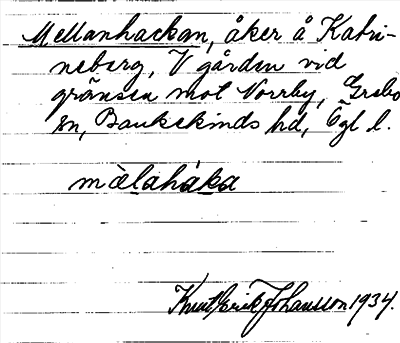 Mellanhackan, åker å Katri-
neberg, V gården vid
gränsen mot Norrby, Grebo
sn, Bankekinds hd, Ögl l.
mèlahàka
Knut Erik Johansson 1934.